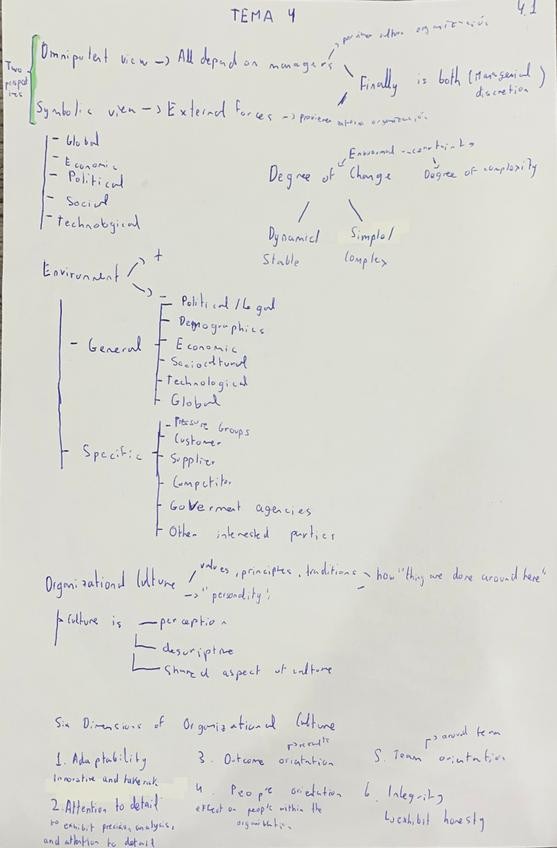 TEMA 4
4.1
Two
Omnipotent view → All depend on managers
Symbolic view → External forces
Finally is both (Managerial discretion)
- Global
- Economic
- Political
- Social
- Technological
Degree of Change
Degree of complexity
Dynamic/
Stable
Simple/
Complex
Environment
+
-
- General
- Political/Legal
- Demographics
- Economic
- Sociocultural
- Technological
- Global
- Specific
- Pressure Groups
- Customer
- Supplier
- Competitor
- Goverment agencies
- Other interested parties
Organizational Culture
values, principles, traditions
how "thing are done around here"
→ "personality"
Culture is
perception
descriptive
Shared aspect of culture
Six Dimensions of Organizational Culture
1. Adaptability
Innovative and take risk
2. Attention to detail
to exhibit precision, analysis,
and attention to detail
3. Outcome orientation
results
4. People orientation
effect on people within the
organization
5. Team orientation
around team
6. Integrity
exhibit honesty